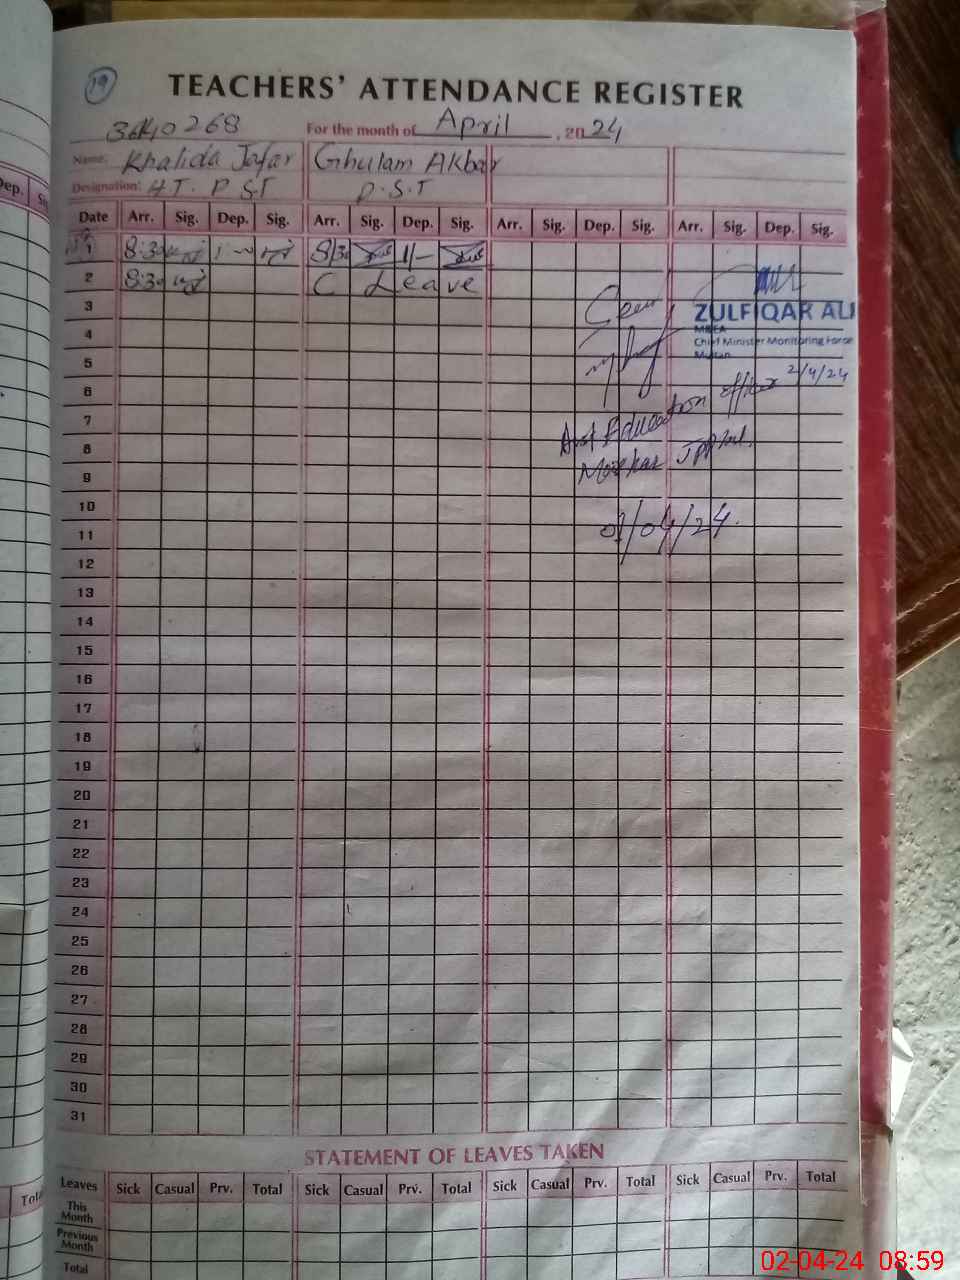 19
TEACHERS' ATTENDANCE REGISTER
For the month of April, 2024
Name: Khalida Jafar Ghulam Akbar
Designation: H.T. P.S.T P.S.T
Date Arr. Sig. Dep. Sig. Arr. Sig. Dep. Sig. Arr. Sig. Dep. Sig. Arr. Sig. Dep. Sig.
1 8:30 8/30 1/-
2 8:30 C Leave
3
ZULFIQAR ALI
MEA
4
Chief Minister Monitoring Force
Multan
5
2/4/24
6
Education Officer
7
8
9
10
01/04/24
11
12
13
14
15
16
17
18
19
20
21
22
23
24
25
26
27
28
29
30
31
STATEMENT OF LEAVES TAKEN
Leaves Sick Casual Prv. Total Sick Casual Prv. Total Sick Casual Prv. Total Sick Casual Prv. Total
This
Month
Previous
Month
Total
Dep.
Total
02-04-24 08:59